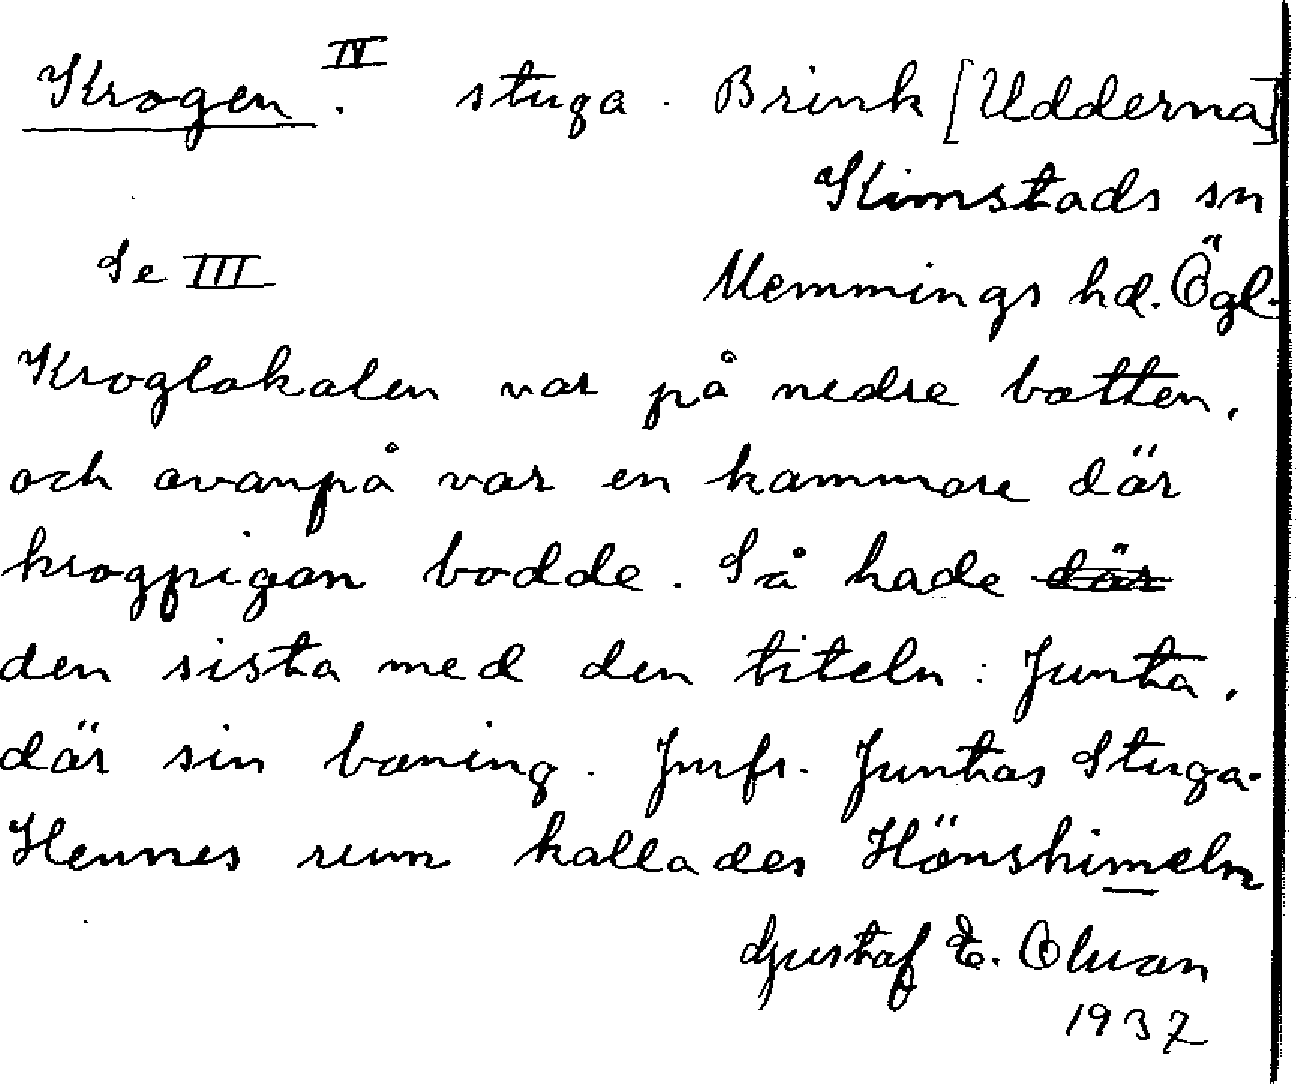 Krogen IV. stuga. Brink [Udderna]
Kimstads sn
Se III Memmings hd. Ögl.
Kroglokalen var på nedre botten,
och ovanpå var en kammare där
krogpigan bodde. Så hade ~~där~~
den sista med den titeln: Junta,
där sin boning. Jmfr. Juntas Stuga.
Hennes rum kallades Hönshimeln
Gustaf E. Olsson
1937